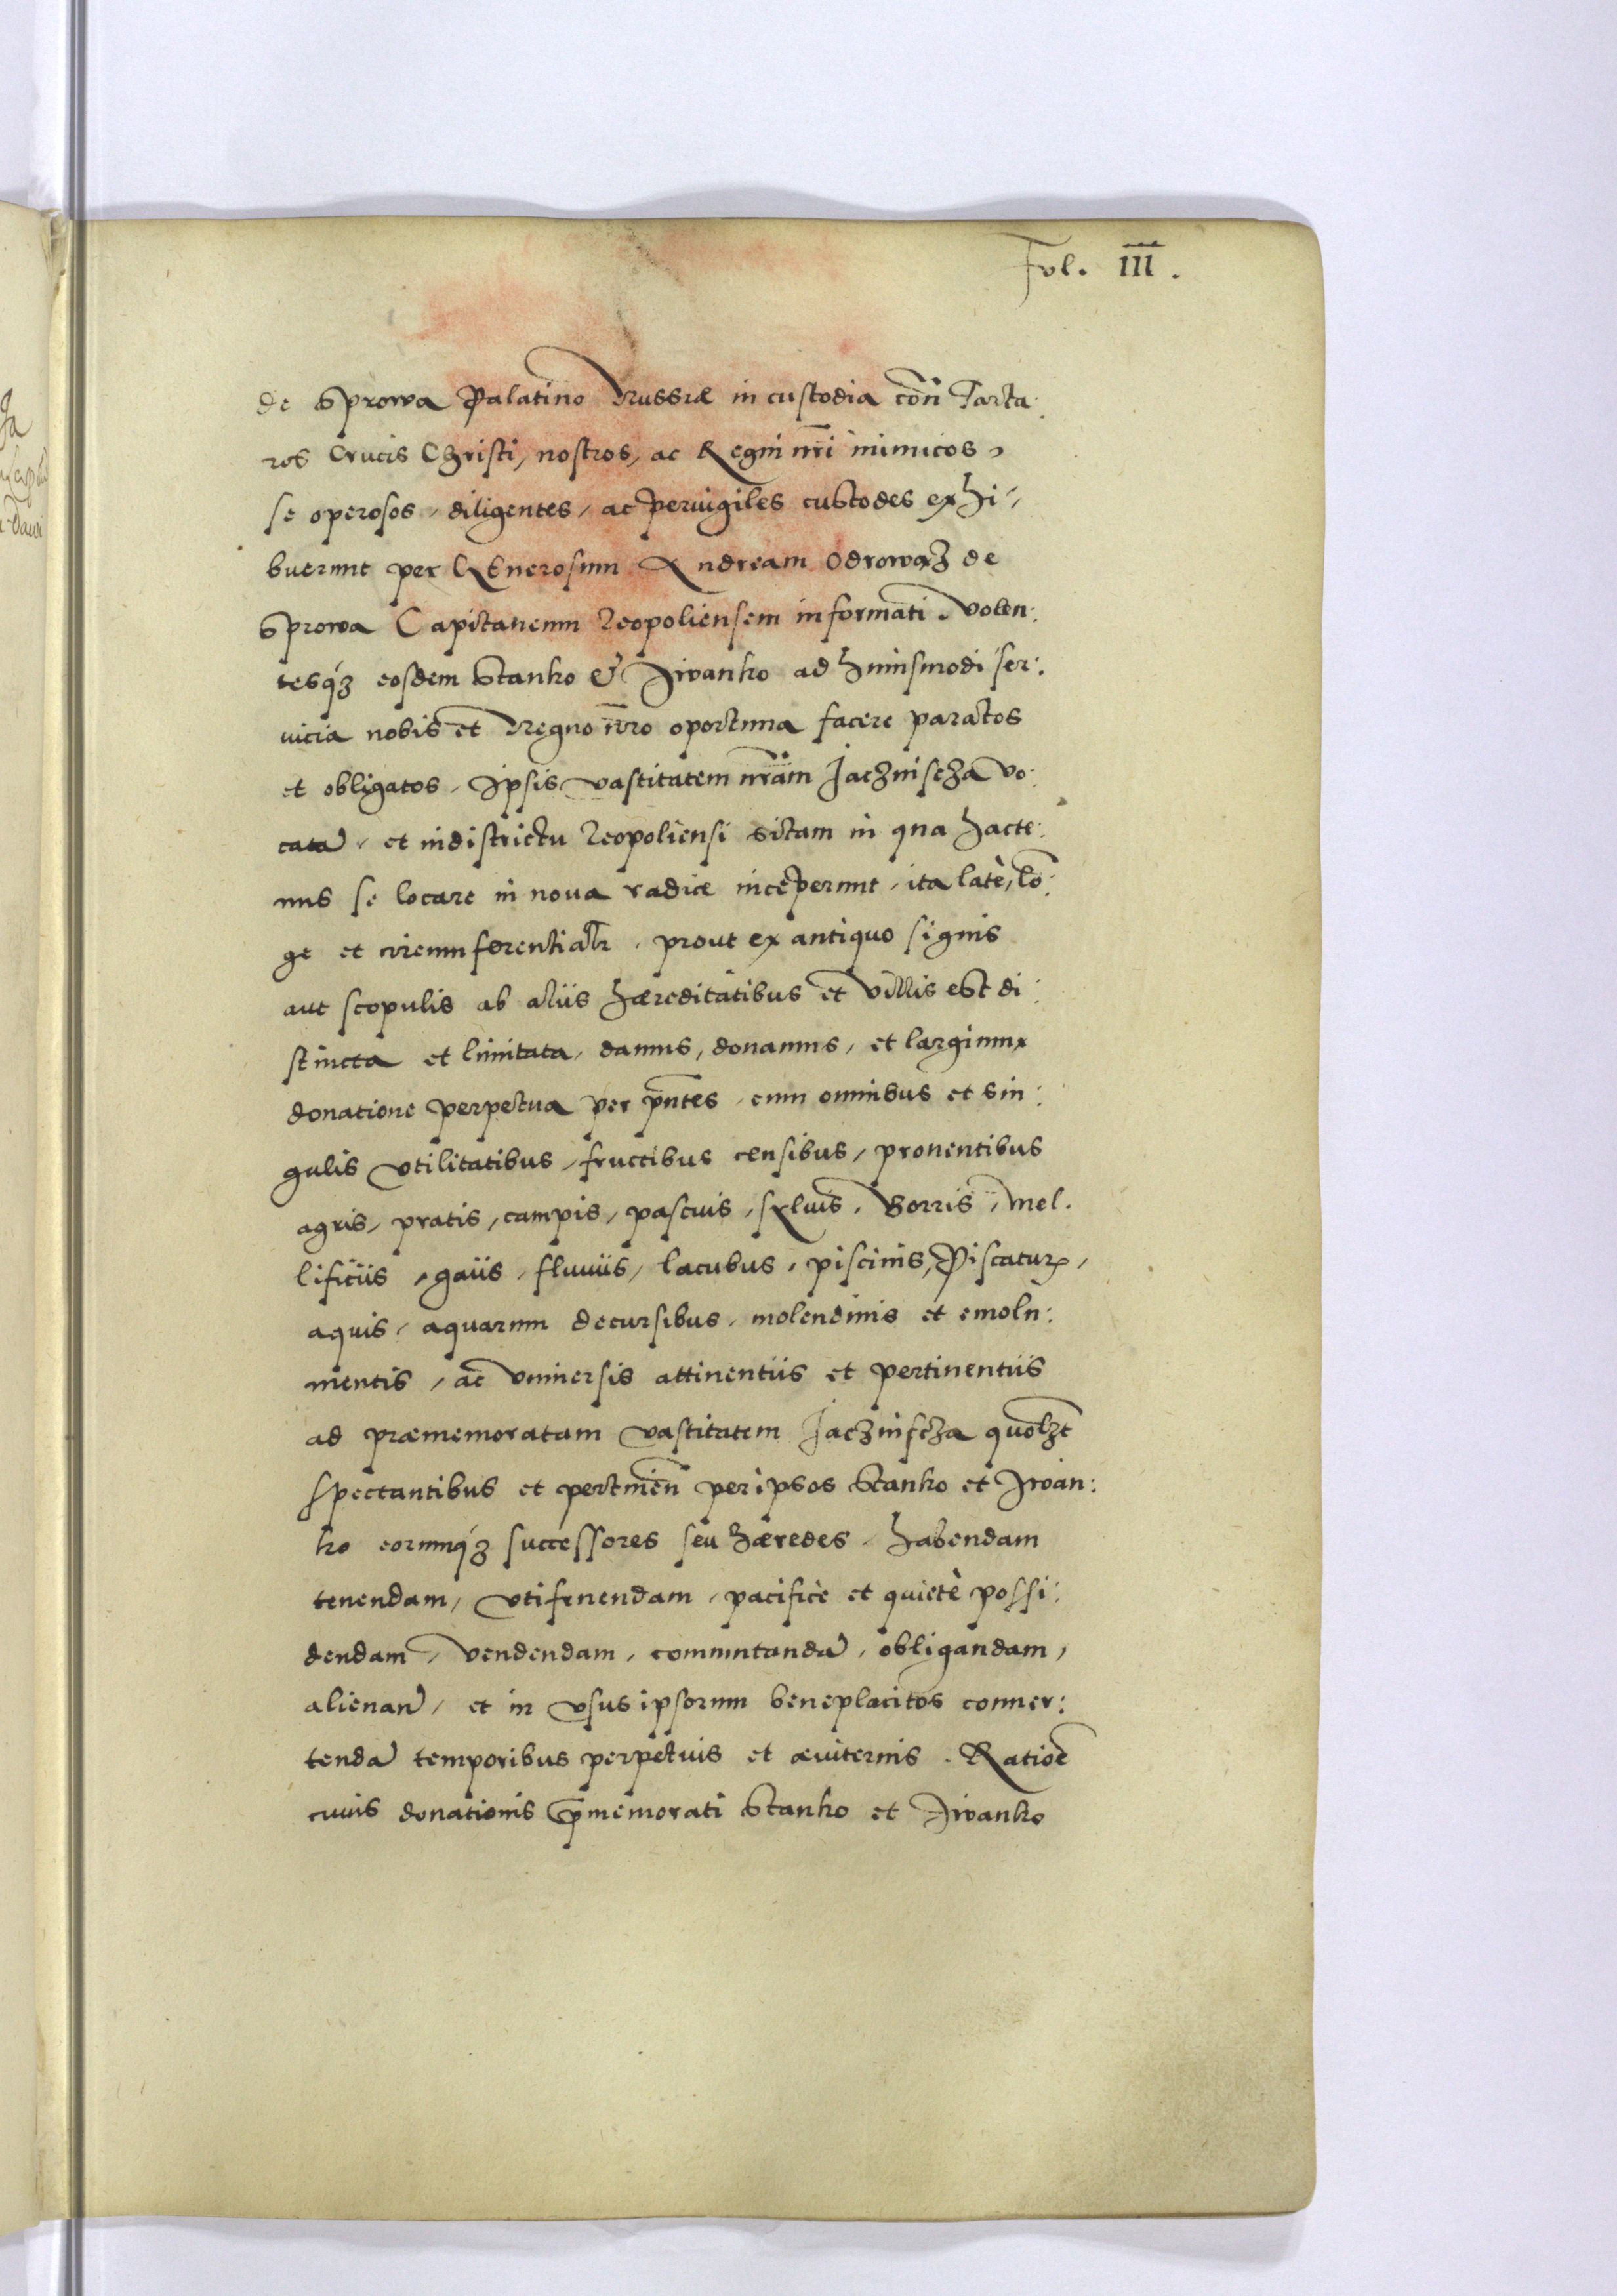 Fol. III.
de Sprowa Palatino Russiæ in custodia con̄ Tarta:
ros Crucis Christi, nostros, ac Regni nr̄i inimicos,
se operosos, diligentes, ac peruigiles custodes exhi:
buerunt per GEnerosum Andream Odrowąż de
Sprowa Capitaneum Leopoliensem informati. Volen:
tesq́ꝫ eosdem Stanko et Iwanko ad huiusmodi ser:
uicia nobis et Regno nr̄o oportuna facere paratos
et obligatos, Ipsis vastitatem nr̄am Jaczniscza vo:
catā, et in districtu Leopoliensi sitam in qua hacte:
nus se locare in noua radice incęperunt, ita latè, lō:
ge et circumferentialr̄, prout ex antiquo signis
aut scopulis ab aliis hæreditatibus et villis est di:
stincta et limitata, damus, donamus, et largimur
donatione perpetua per pn̄tes, cum omnibus et sin:
gulis vtilitatibus, fructibus censibus, prouentibus
agris, pratis, campis, pascuis, syluis, Borris, Mel.
lificiis, gaiis, fluuiis, lacubus, piscinis, Piscatur̹,
aquis, aquarum decursibus, molendinis et emolu:
mentis, ac vniuersis attinentiis et pertinentiis
ad præmemoratam vastitatem Jaczniscza quolꝫt
spectantibus et pertinen̄ per ipsos Stanko et Iwan:
ko eorumq́ꝫ successores seu hæredes, habendam
tenendam, vtifruendam, pacificè et quietè possi:
dendam, vendendam, commutandā, obligandam,
alienan̄, et in vsus ipsorum beneplacitos conuer:
tendā temporibus perpetuis et æuiternis. Ratioē
cuius donationis p̄memorati Stanko et Iwanko